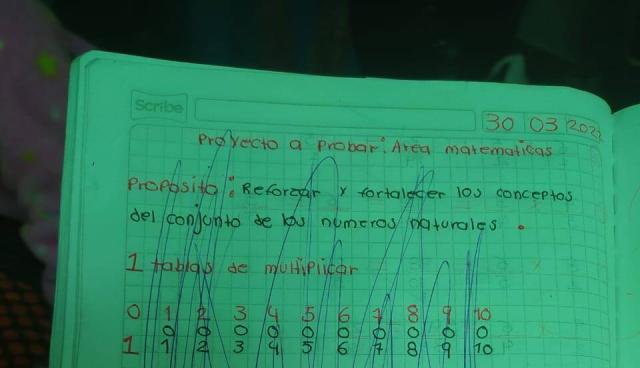 Scribe
30 03 202
Proyecto a probar: Area matematicas
Proposito: Reforzar y fortalecer los conceptos
del conjunto de los numeros naturales.
1 tablas de multiplicar
0 1 2 3 4 5 6 7 8 9 10
0 0 0 0 0 0 0 0 0 0
1 1 2 3 4 5 6 7 8 9 10